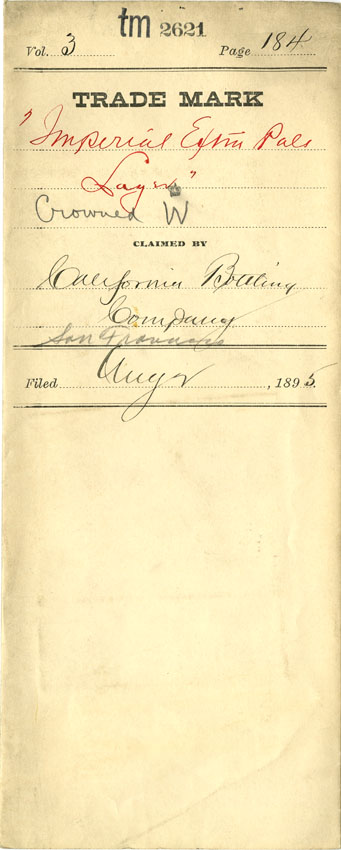 tm 2621
Vol. 3 Page 184
TRADE MARK
"Imperial Extra Pale
Lager"
Crowned W
CLAIMED BY
California Bottling
Company
San Francisco
Filed Aug 2, 1895.